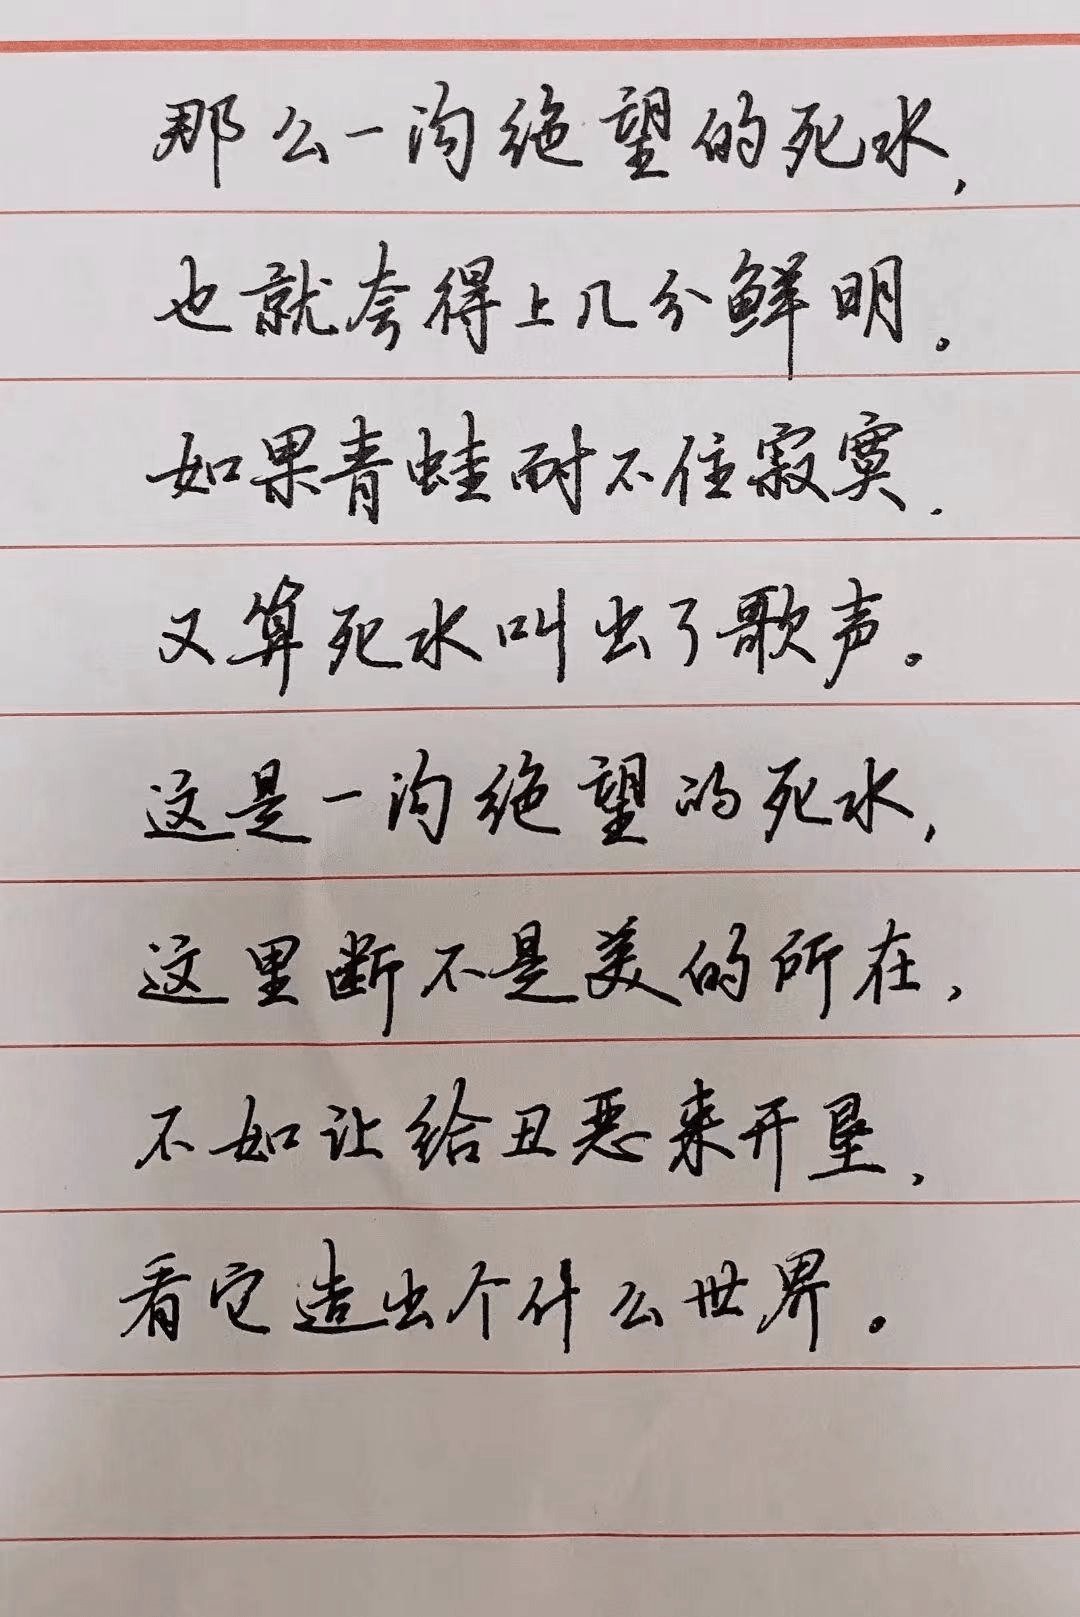 那么一沟绝望的死水,
也就夸得上几分鲜明。
如果青蛙耐不住寂寞,
又算死水叫出了歌声。
这是一沟绝望的死水,
这里断不是美的所在,
不如让给丑恶来开垦,
看它造出个什么世界。